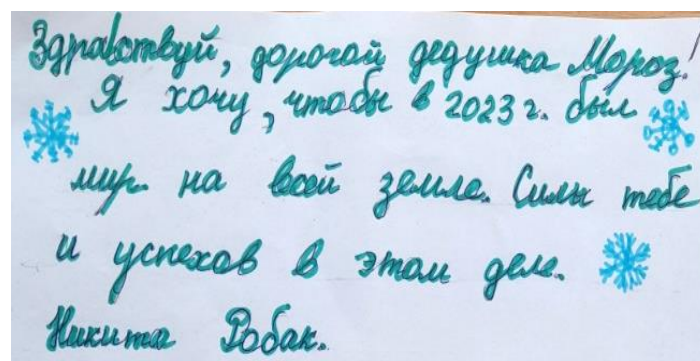 Здравствуй, дорогой дедушка Мороз!
Я хочу, чтобы в 2023 г. был
мир на всей земле. Силы тебе
и успехов в этом деле.
Никита Робак.